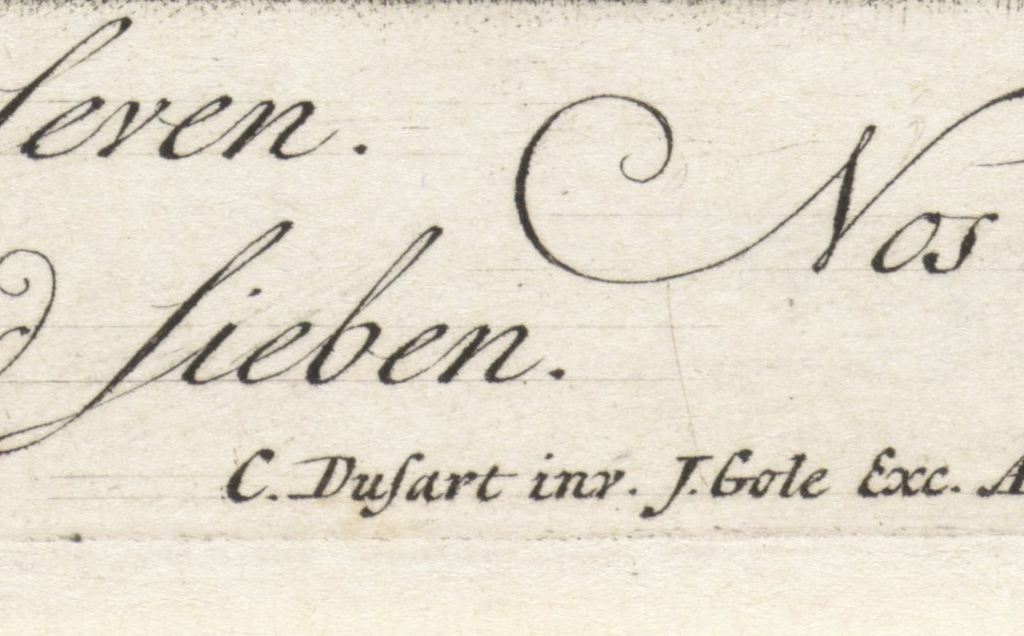 seven.
Nos
sieben.
C. Dusart inv. J. Gole Exc. A